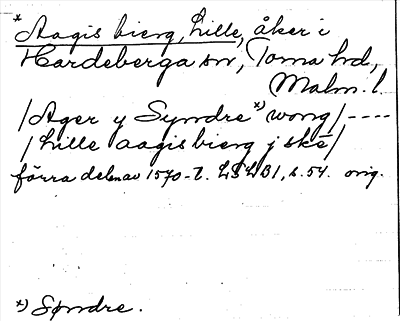 *Aagis bierg, Lille, åker i
Hardeberga sn, Torna hd,
Malm. l.
/Ager y Syndre *) wong/----
/Lille aagis bierg j skē/
förra delen av 1570-t. LSLB1, s. 54. orig.
*) Søndre.